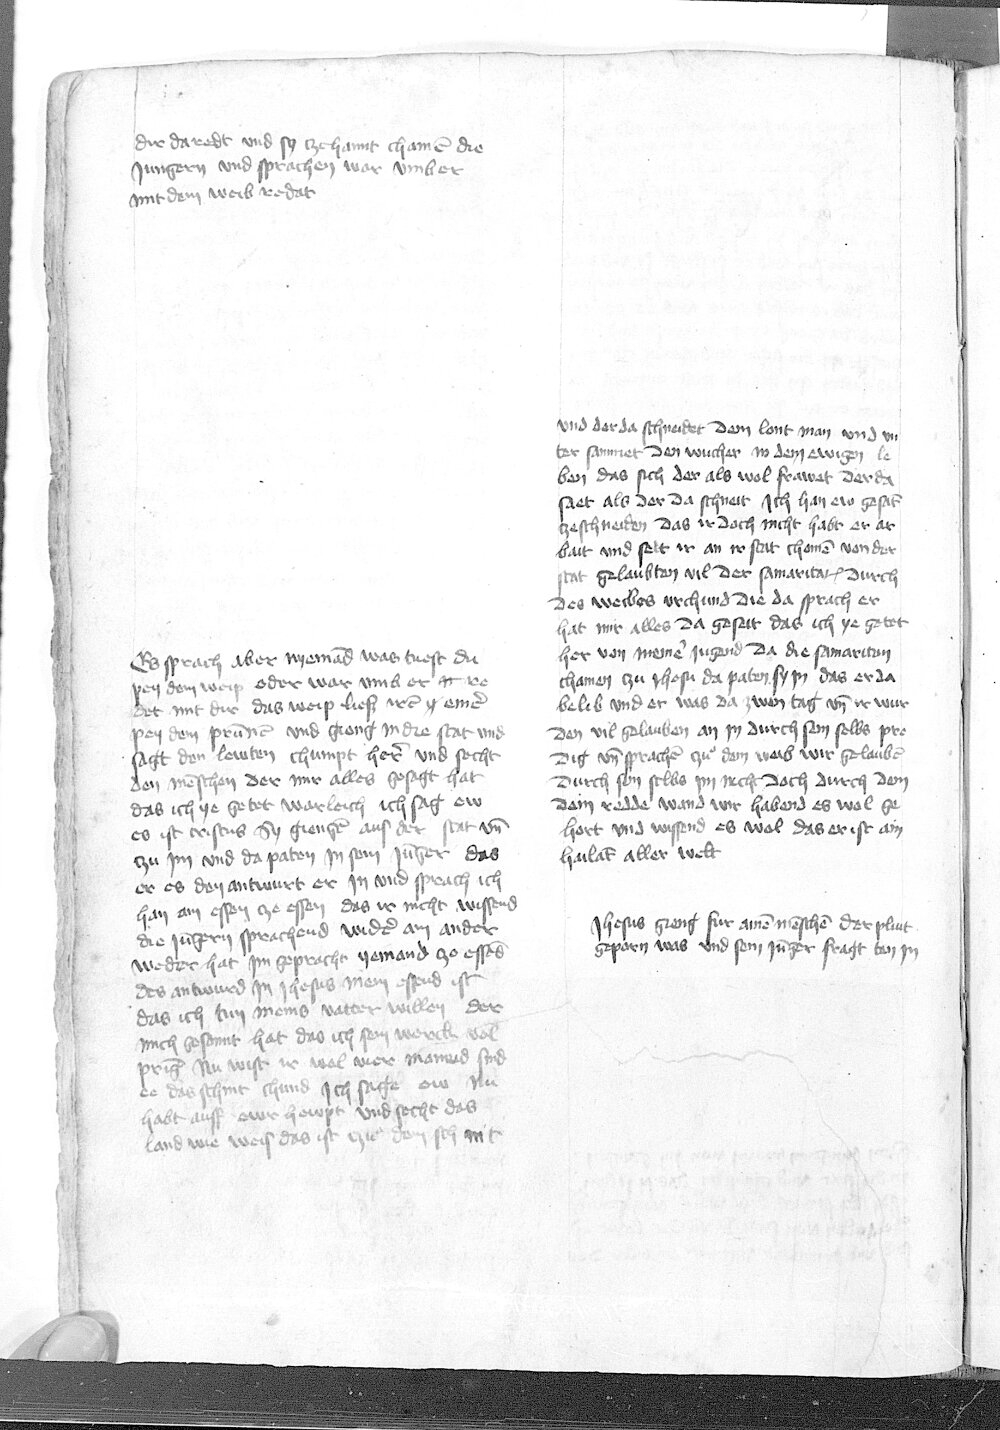 dir da redt und sy zehannt chamē die
Jungern und sprachen war umb er
mit dem weib redat
Es sprach aber nyemād was tuest du
pey dem weip oder war umb er re
det mit dir das weip liesz irē emēr
pey dem prūnē und gieng in dre stat und
sagt den lewten chumpt herr und secht
den mēschen der mir alles gesagt hat
das ich ye getet warleich ich sag ew
es ist cristus Sy giengē aus der stat uñ
czu im und da paten in sein Jūger das
er es den antwurt er in und sprach ich
han ain essen ze essen das ir nicht wissend
die Jūgern sprachend widē ain ander
weder hat im gepracht yemand ze essēd
des antwurd in Jhesus mein essend ist
das ich tun meins vatter willen der
mich gesannt hat das ich sein werch vol
pring Nu wist ir wol vier maneid sind
ee das schnit chund Ich sage ew Nu
habt auff ewr hewpt und secht das
land wie weis das ist czu dem schnit
und der da schneidet dem lont man und un
ter sammet den wucher in dem ewigen le
ben das sich der als wol frawet der da
saet als der da schneit Ich han ew gesāt
zeschneiden das ir doch nicht habt er ar
bait und seit ir an ir stat chomē von der
stat gelaubten vil der samaritan durch
des weibes urchund die da sprach er
hat mir alles da geseit das ich ye getet
her von meinē Jugend Da die samaritan
chamen zu Jhesu da paten sy in das er da
belib und er was da zwen tag uñ ir wur
den vil gelauben an in durch sein selbs pre
dig uñ sprachē zu dem weib wir gelaubē
durch sein selbs im nicht doch durch dem
dein redde wand wir habend es wol ge
hort und wissend es wol das er ist ain
hailāt aller welt
Jhesus gieng fur ainē mēschē der plint
geporn was und sein Jūger fragt ten in